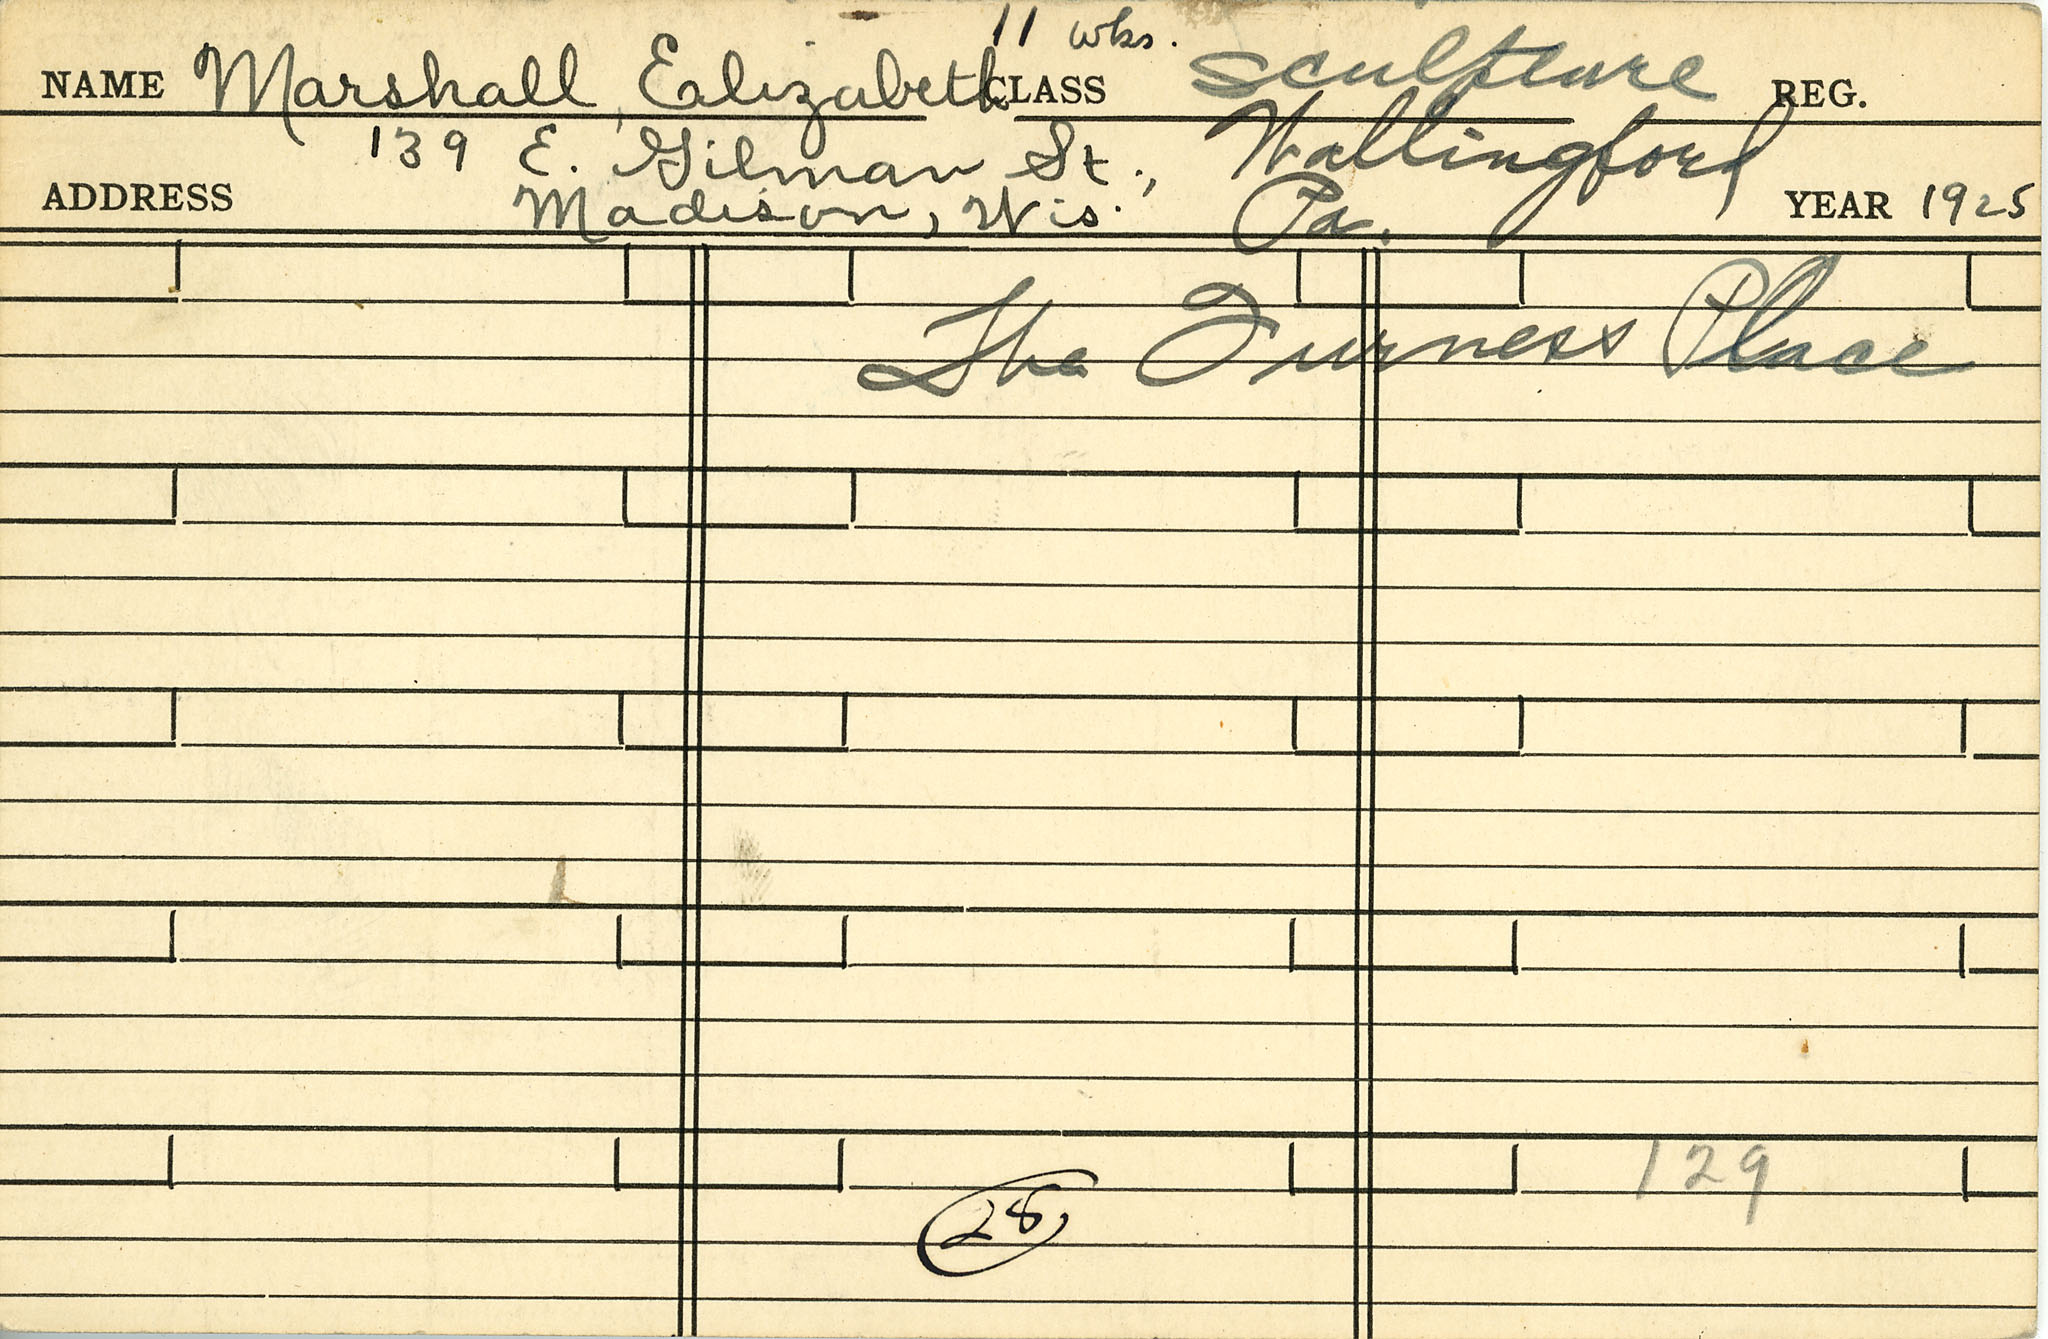 11 wks.
NAME Marshall, Elizabeth CLASS Sculpture REG.
139 E. Gilman St., Wallingford
ADDRESS Madison, Wis. Pa. YEAR 1925
The Furness Place
129
28